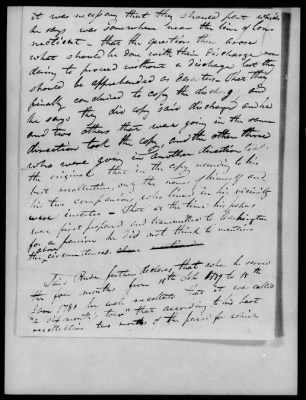 it was necessary that they should part which
he says was somewhere near the line of Con-
necticut - that the question then arose
what should be done with their discharge - none
daring to proceed without a discharge lest they
should be apprehended as deserters that they
finally concluded to copy the discharge; and
he says they did copy said discharge and he
and two others that was going in the same
direction took the copy and the other three
who were going in another direction took
the original that in the copy according to his
best recollection, only the names of himself and
his two companions who lived in his vicinity
were inserted - That at the time his papers
were first prepared and transmitted to Washington
for a pension he did not think to mention
these circumstances.
This further declares, that when he served
the months from 18th Feb 1779 to 18th
1780 he well recollects that it was called
"a months tour" that according to his best
recollection two months of the period for which